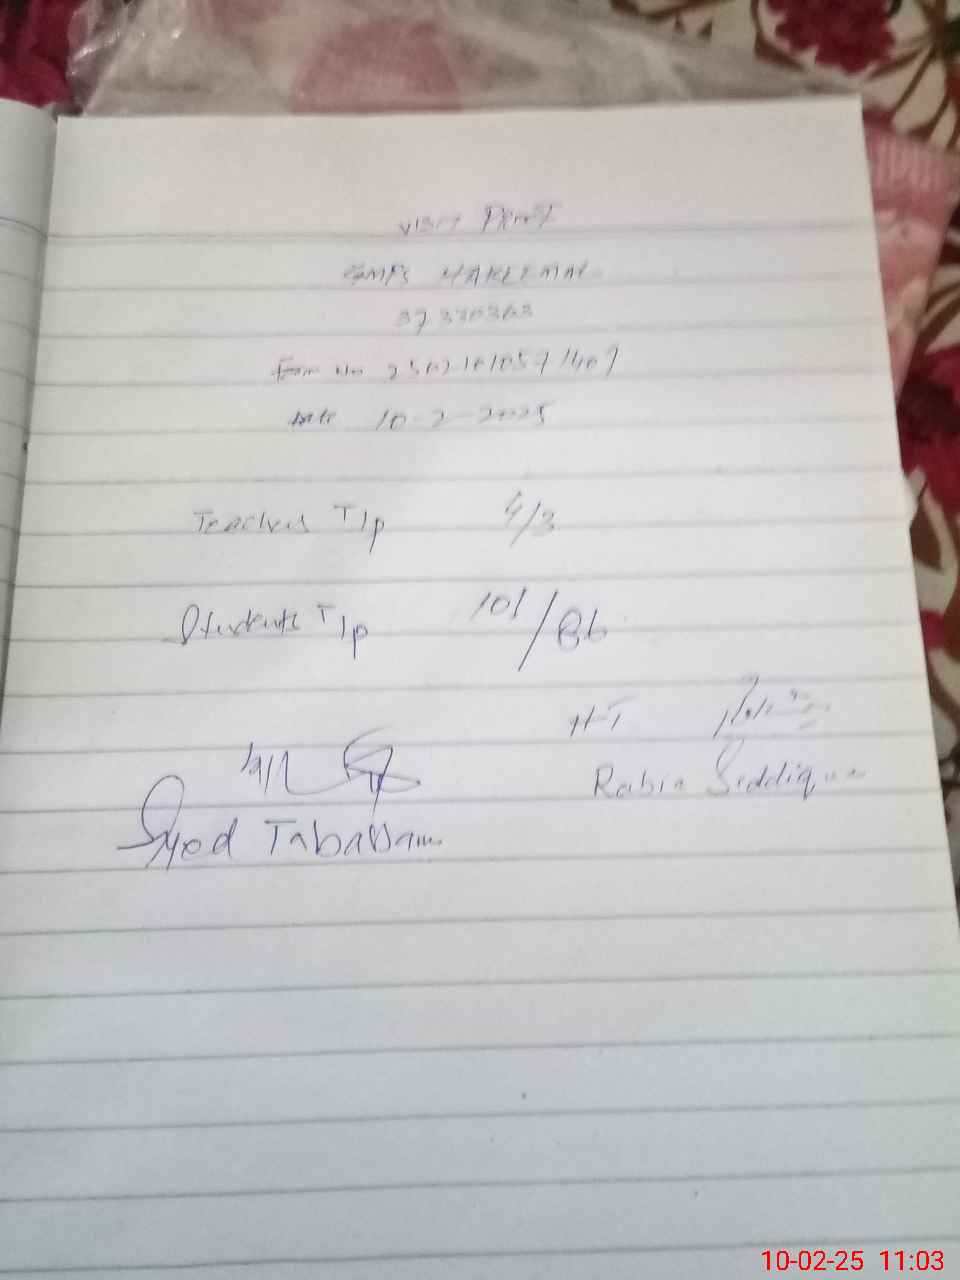 VISIT PROOF
GMPS HAKEEMAL
37330363
Form No 25021010571407
Date 10-2-2025
Teachers T/p 4/3
Students T/p 101/86
HT
Rabia Siddiqua
Syed Tabassam
10-02-25 11:03